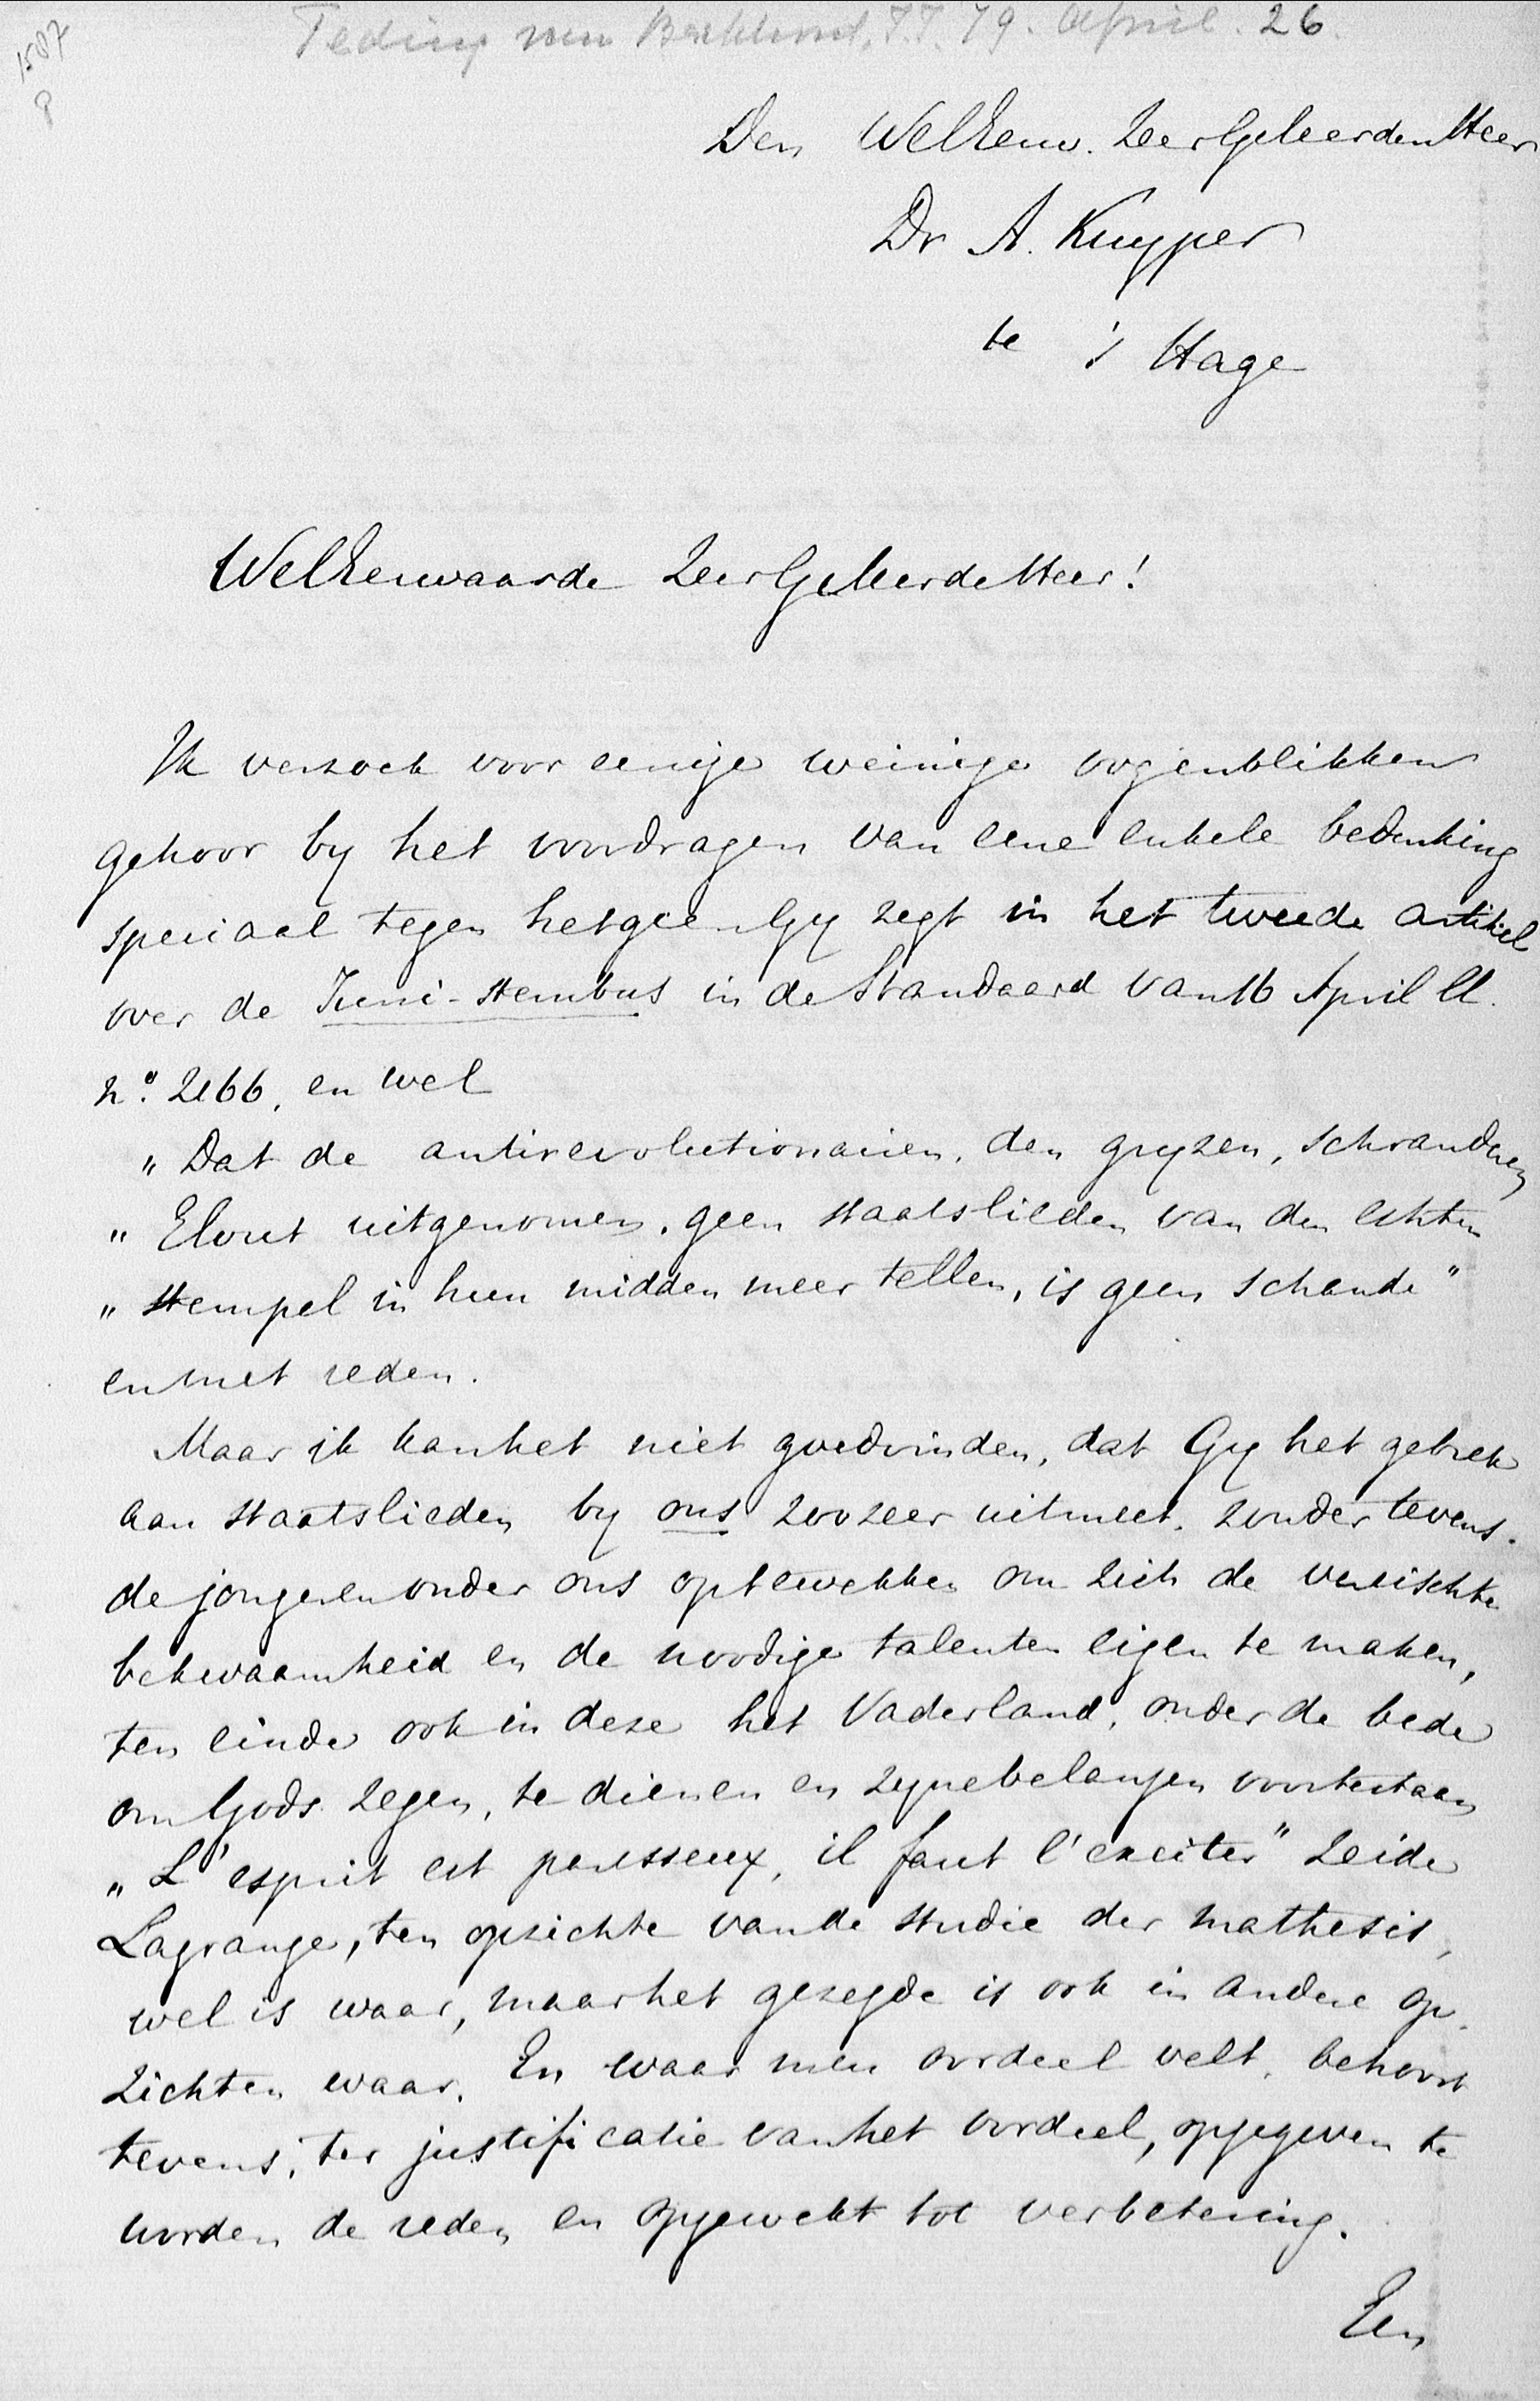 1587
Teding van Berkhout, J.J. 79. April. 26.
Den WelEerw. ZeerGeleerden Heer
Dr A. Kuyper
te 's Hage
WelEerwaarde ZeerGeleerde Heer!
Ik verzoek voor eenige weinige oogenblikken
gehoor by het voordragen van eene enkele bedenking
speciaal tegen hetgeen Gy zegt in het tweede artikel
over de Juni-stembus in de Standaard van 16 April ll.
no. 2166, en wel
„Dat de antirevolutionairen, den gryzen, schranderen
„Elout uitgenomen, geen staatslieden van den echten
„stempel in hun midden meer tellen, is geen schande"
en met reden.
Maar ik kan het niet goedvinden, dat Gy het gebrek
aan staatslieden by ons zoozeer uitmeet, zonder tevens
de jongeren onder ons optewekken om zich de vereischte
bekwaamheid en de noodige talenten eigen te maken,
ten einde ook in deze het Vaderland, onder de bede
om Gods zegen, te dienen en zyne belangen voortestaan
„L'esprit est paresseux, il faut l'exciter" zeide
Lagrange, ten opzichte van de studie der mathesis,
wel is waar, maar het gezegde is ook in andere op-
zichten waar. En waar men oordeel velt, behoort
tevens, ter justificatie van het oordeel, opgegeven te
worden de reden en opgewekt tot verbetering.
Een